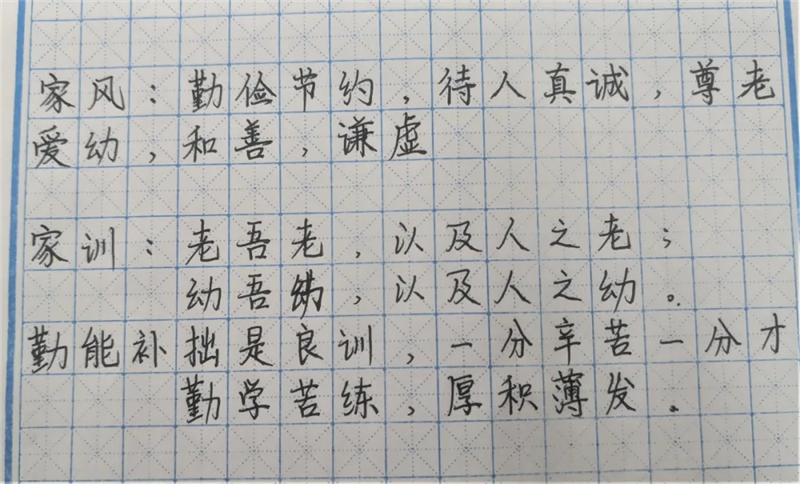 家风：勤俭节约，待人真诚，尊老
爱幼，和善，谦虚
家训：老吾老，以及人之老；
幼吾幼，以及人之幼。
勤能补拙是良训，一分辛苦一分才
勤学苦练，厚积薄发。